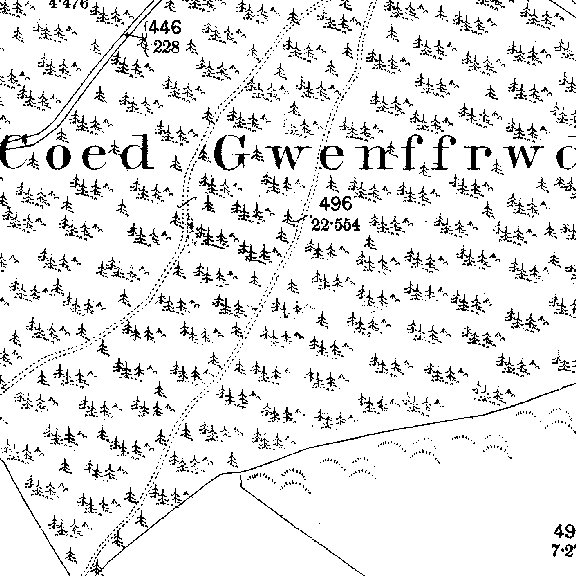 4·476
446
228
Coed Gwenffrwd
496
22·554
49
7·2